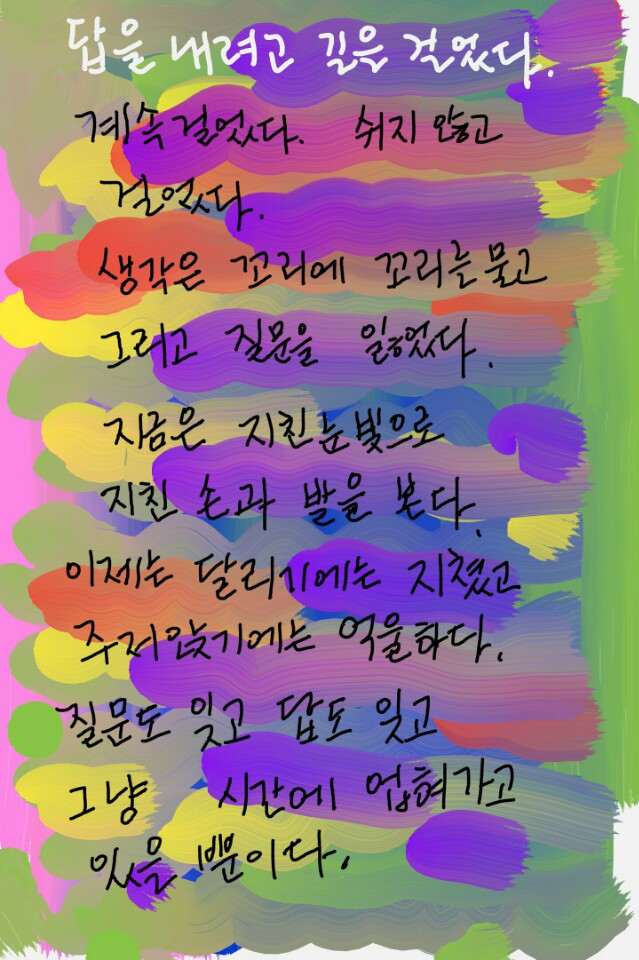 답을 내려고 길을 걸었다.
계속 걸었다. 쉬지 않고
걸었다.
생각은 꼬리에 꼬리를 물고
그리고 질문을 잃었다.
지금은 지친 눈빛으로
지친 손과 발을 본다.
이제는 달리기에는 지쳤고
주저앉기에는 억울하다.
질문도 잊고 답도 잊고
그냥 시간에 업혀가고
있을 뿐이다.